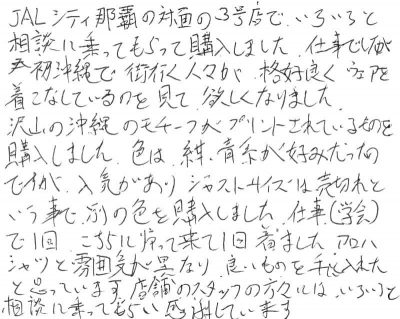 JALシティ那覇の対面の3号店で、いろいろと
相談に乗ってもらって購入しました。仕事でしたが
初沖縄で街行く人々が、格好良くウェアを
着こなしているのを見て、欲しくなりました。
沢山の沖縄のモチーフがプリントされているものを
購入しました。色は、紺、青系が好みだったの
ですが、人気があり ジャストサイズは売切れと
いう事で、別の色を購入しました。仕事(学会)
で1回、こちらに帰って来て1回着ました。アロハ
シャツと雰囲気が異なり、良いものを手に入れた
と思っています。店舗のスタッフの方々には、いろいろと
相談に乗ってもらい感謝しています